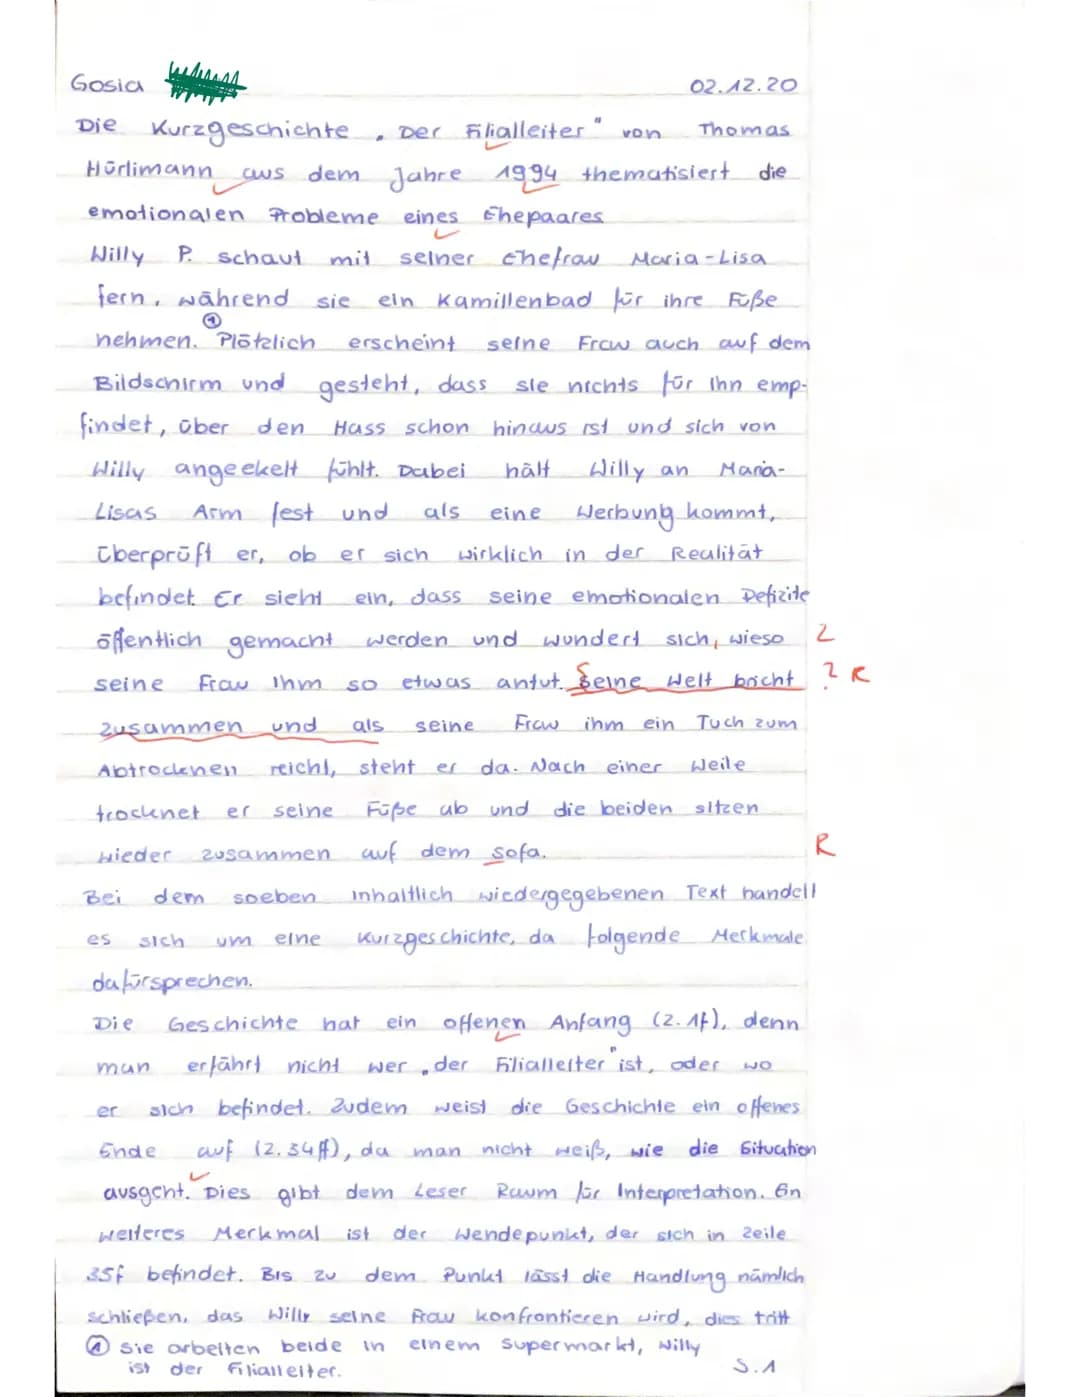 Gosia
02.12.20
Die Kurzgeschichte „Der Filialleiter" von Thomas
Hürlimann aus dem Jahre 1994 thematisiert die
emotionalen Probleme eines Ehepaares
Willy P. schaut mit seiner Ehefrau Maria-Lisa
fern, während sie ein Kamillenbad für ihre Füße
nehmen. ① Plötzlich erscheint seine Frau auch auf dem
Bildschirm und gesteht, dass sie nichts für ihn emp-
findet, über den Hass schon hinaus ist und sich von
Willy angeekelt fühlt. Dabei hält Willy an Maria-
Lisas Arm fest und als eine Werbung kommt,
überprüft er, ob er sich wirklich in der Realität
befindet. Er sieht ein, dass seine emotionalen Defizite
öffentlich gemacht werden und wundert sich, wieso Z
seine Frau ihm so etwas antut. Seine Welt bricht ? R
zusammen und als seine Frau ihm ein Tuch zum
Abtrocknen reicht, steht er da. Nach einer Weile
trocknet er seine Füße ab und die beiden sitzen
wieder zusammen auf dem sofa. R
Bei dem soeben inhaltlich wiedergegebenen Text handelt
es sich um eine Kurzgeschichte, da folgende Merkmale
dafürsprechen.
Die Geschichte hat ein offenen Anfang (Z. 1f), denn
man erfährt nicht wer „der Filialleiter" ist, oder wo
er sich befindet. Zudem weist die Geschichte ein offenes
Ende auf (Z. 34ff), da man nicht weiß, wie die Situation
ausgeht. Dies gibt dem Leser Raum für Interpretation. Ein
weiteres Merkmal ist der Wendepunkt, der sich in Zeile
35f befindet. Bis zu dem Punkt lässt die Handlung nämlich
schließen, das Willy seine Frau konfrontieren wird, dies tritt
① Sie arbeiten beide in einem Supermarkt, Willy
ist der Filialleiter.
S.1